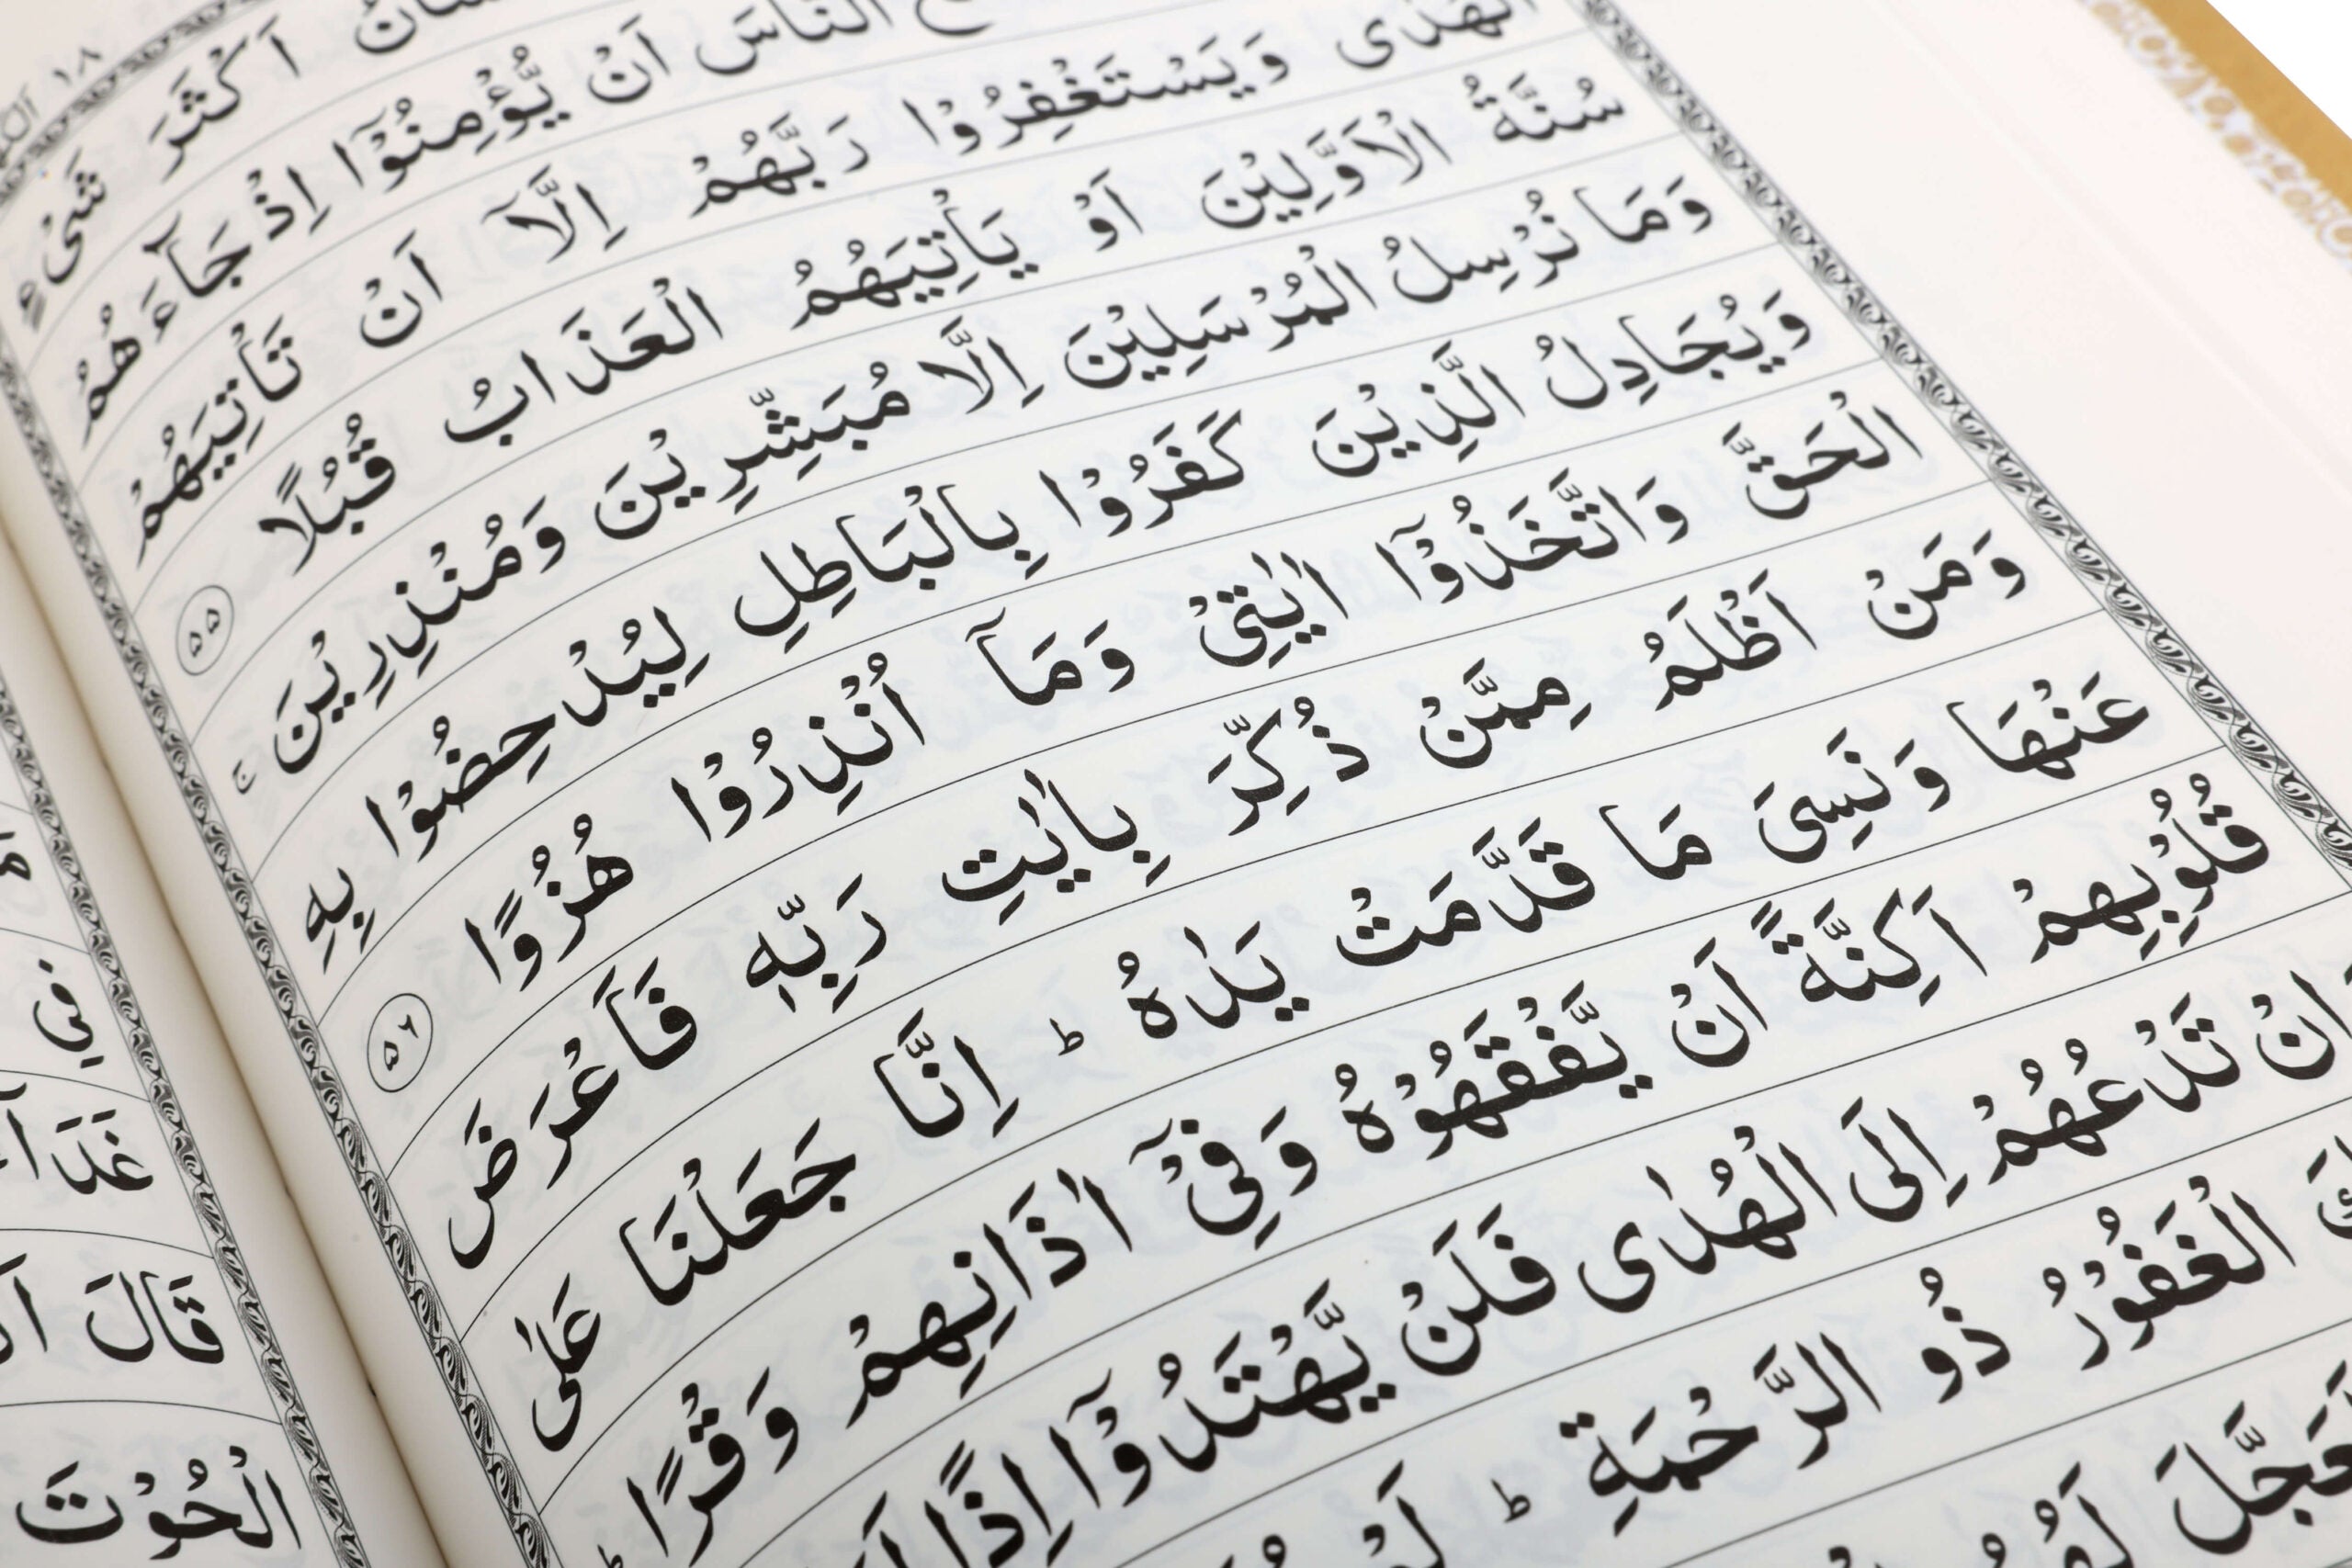 ١٨
اَكْثَرَ شَیْءٍ
النَّاسَ اَنْ يُّؤْمِنُوْۤا اِذْ جَآءَهُمُ
الْهُدٰی وَيَسْتَغْفِرُوْا رَبَّهُمْ اِلَّاۤ اَنْ تَاْتِيَهُمْ
سُنَّةُ الْاَوَّلِيْنَ اَوْ يَاْتِيَهُمُ الْعَذَابُ قُبُلًا ٥٥
وَمَا نُرْسِلُ الْمُرْسَلِيْنَ اِلَّا مُبَشِّرِيْنَ وَمُنْذِرِيْنَ ۚ
وَيُجَادِلُ الَّذِيْنَ كَفَرُوْا بِالْبَاطِلِ لِيُدْحِضُوْا بِهِ
الْحَقَّ وَاتَّخَذُوْۤا اٰيٰتِیْ وَمَاۤ اُنْذِرُوْا هُزُوًا ٥٦
وَمَنْ اَظْلَمُ مِمَّنْ ذُكِّرَ بِاٰيٰتِ رَبِّهٖ فَاَعْرَضَ
عَنْهَا وَنَسِیَ مَا قَدَّمَتْ يَدٰهُ ؕ اِنَّا جَعَلْنَا عَلٰی
قُلُوْبِهِمْ اَكِنَّةً اَنْ يَّفْقَهُوْهُ وَفِیْۤ اٰذَانِهِمْ وَقْرًا ؕ
اِنْ تَدْعُهُمْ اِلَی الْهُدٰی فَلَنْ يَّهْتَدُوْۤا اِذًا
الْغَفُوْرُ ذُو الرَّحْمَةِ ؕ
قَالَ
الْحُوْتَ